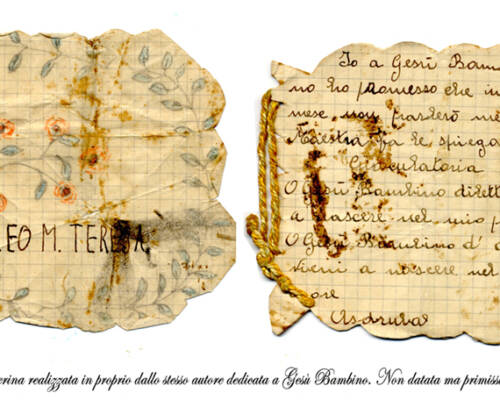 LEO M. TERESA
Io a Gesù Bam
no ho promesso che in
mese non parlerò
Maestra fa le spiega
O Gesù Bambino dilett
a nascere nel mio
O Gesù Bambino d'
vieni a nascere nel
ore
Asdrubal
erina realizzata in proprio dallo stesso autore dedicata a Gesù Bambino. Non datata ma primiss